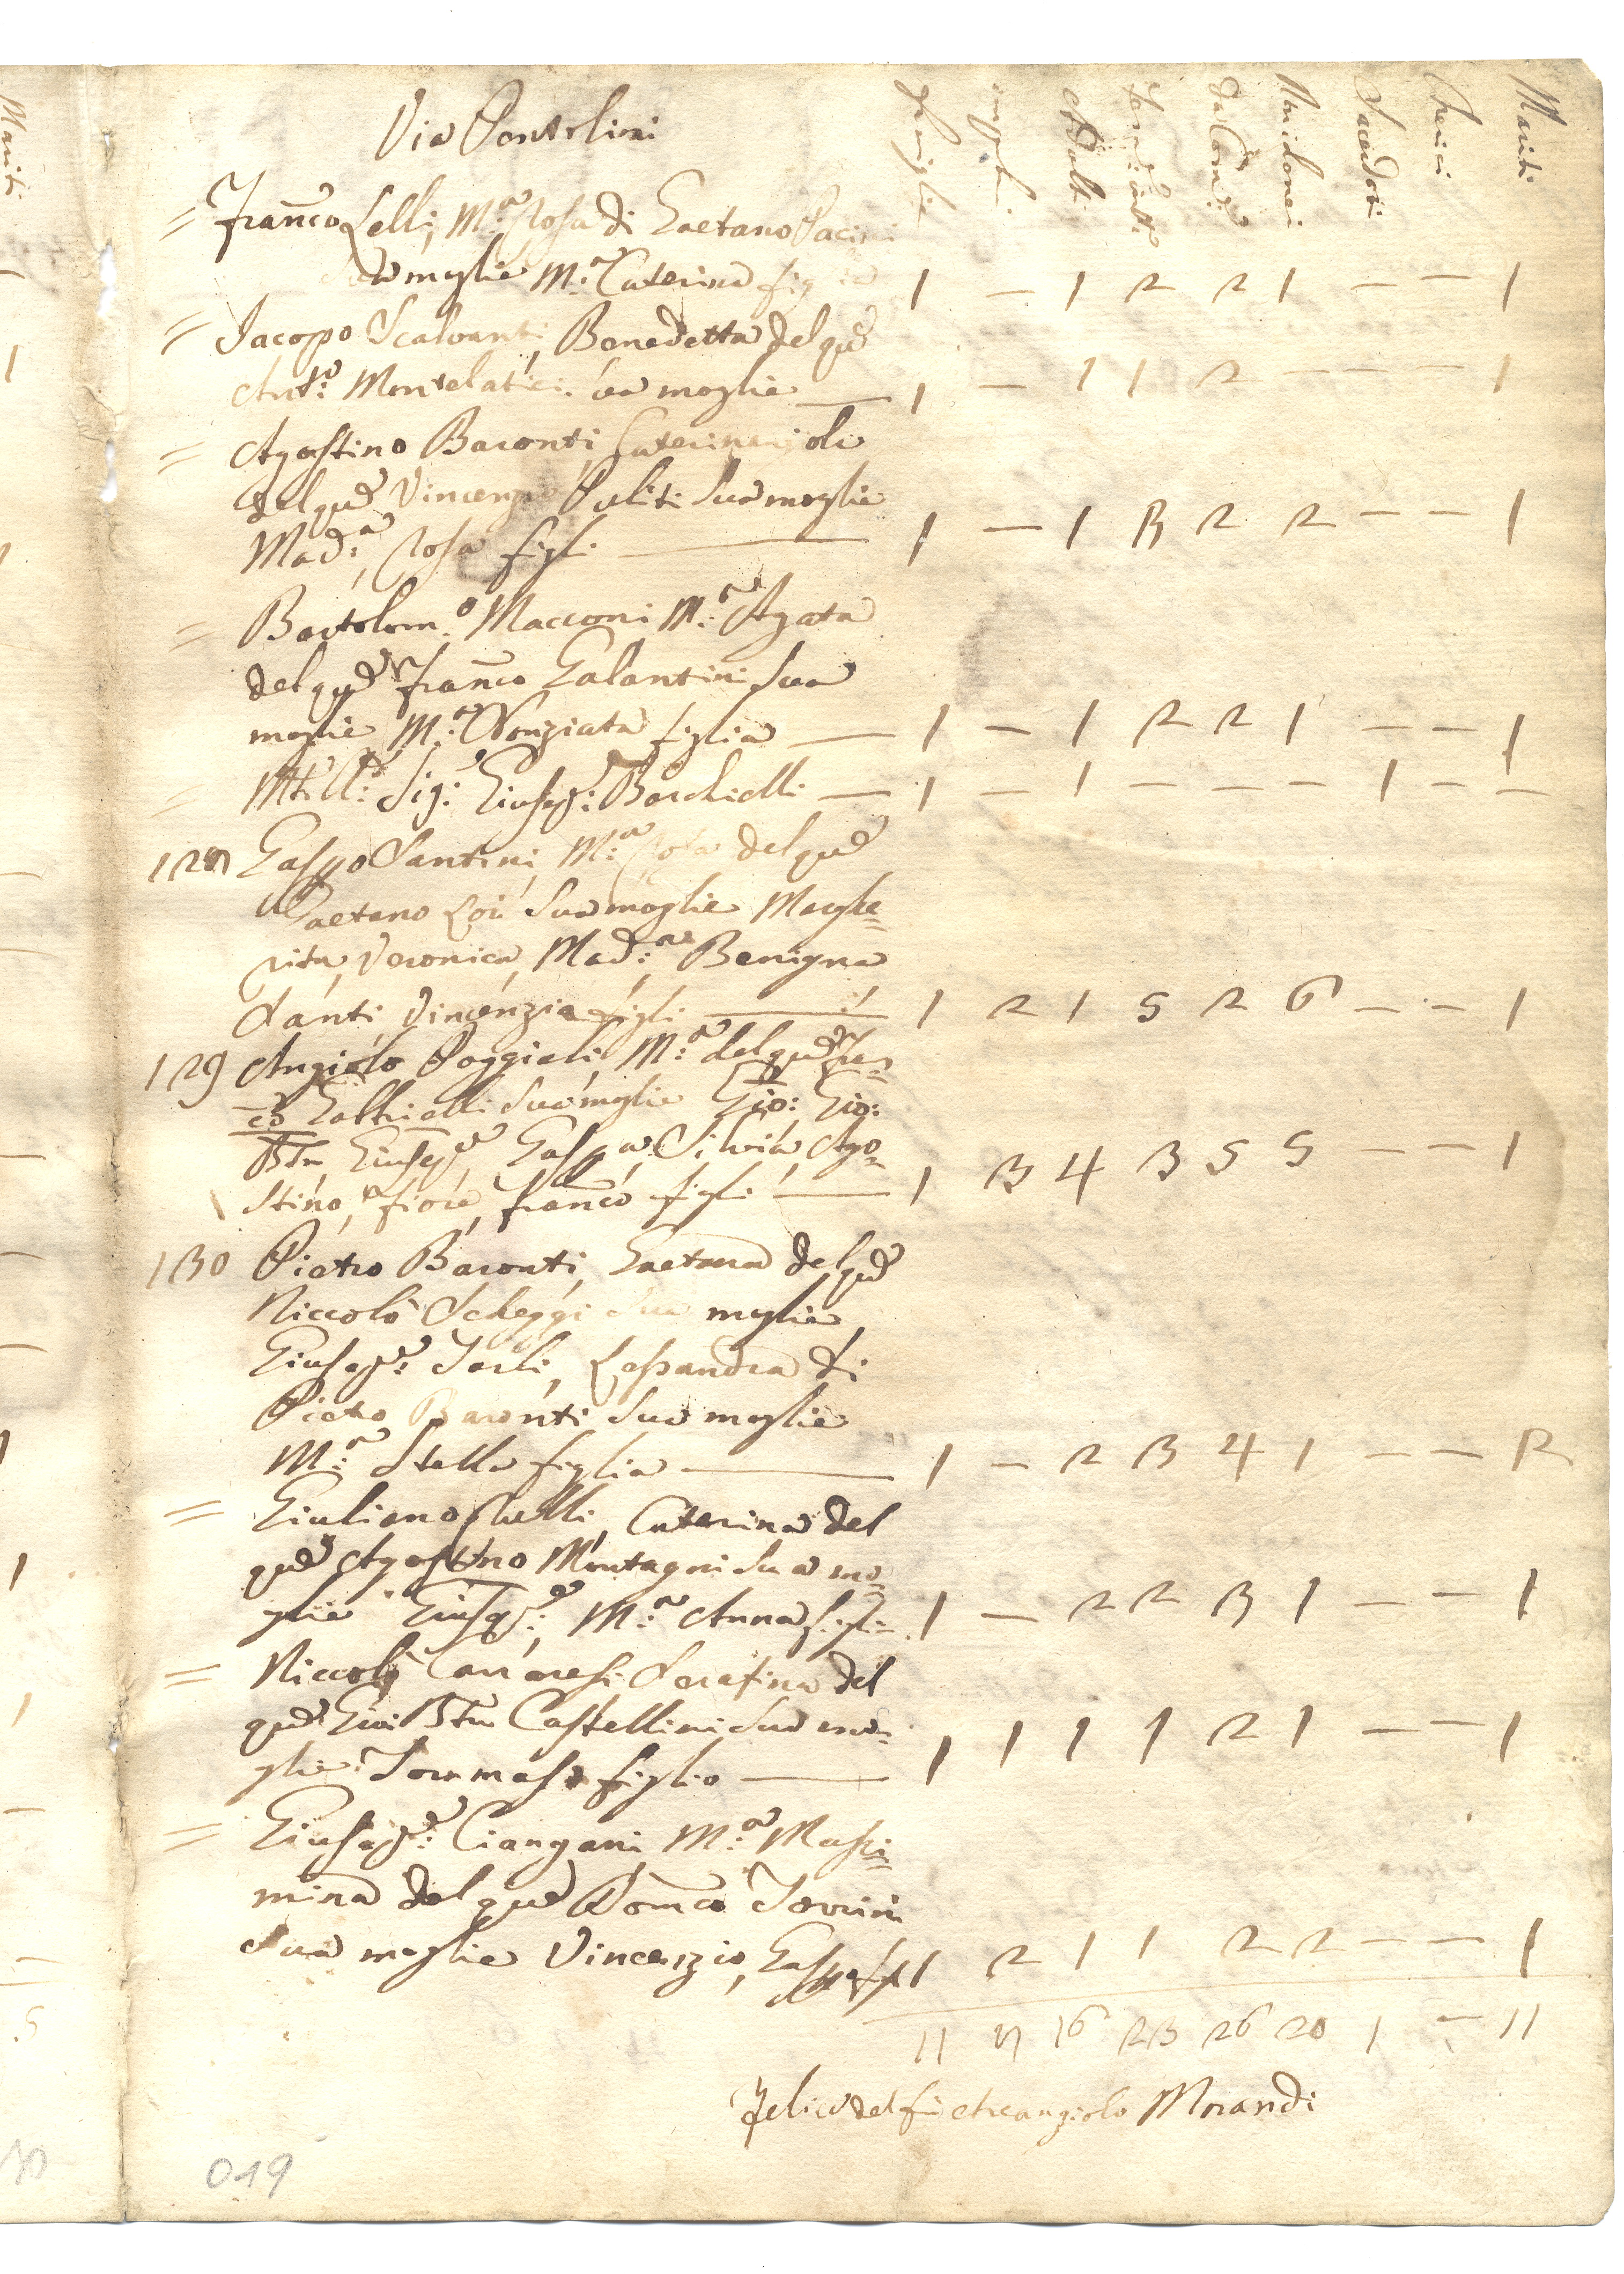 Via Pontolini
famiglie impub: Adulti femi: ātt: da Com: Unidonei Sacerdoti Cherici Mariti
= Franco Lelli, M:a Rosa di Gaetano Pacini
moglie M:a Caterina fig 1 — 1 2 2 1 — — 1
= Jacopo Scalvanti, Benedetta del qu
Ant:o Montelatici sua moglie — 1 — 1 1 2 — — — 1
= Agostino Baronti, Caterina
del qu Vincenzio Puliti Sua moglie
Mad:a, Rosa figli — 1 — 1 3 2 2 — — 1
= Bartolom:o Macconi M:a Agata
del qu Franco Galantini Sua
moglie M:a Nonziata figlia — 1 — 1 2 2 1 — — 1
= Sig: Giusep: Barchielli — 1 — 1 — — — 1 — —
127 Gaspo Santini, M:a Rosa del qu
Gaetano Sua moglie Marghe=
rita, Veronica, Mad:a Benigna
Santi, Vincenzia figli — 1 2 1 5 2 6 — — 1
129 Angiolo Poggiali, M:a del qu Fran=
co Gabbrielli Sua moglie Gio: Gio:
Btta Giusep, Gaspa, Silvia, Ago=
stino, fiore, franco figli — 1 3 4 3 5 5 — — 1
130 Pietro Baronti, Gaetana del qu
Niccolò Scheggi Sua moglie,
Giusep: Sarli, Lessandra di
Pietro Baronti Sua moglie
M:a Stella figlia — 1 — 2 3 4 1 — — 2
= Giuliano Chelli, Caterina del
qu Agostino Montagni Sua mo=
glie Giusep:, M:a Anna figli 1 — 2 2 3 1 — — 1
= Niccolò Serafina del
qu Gio: Btta Castellini Sua mo=
glie Tommaso figlio — 1 1 1 1 2 1 — — 1
= Giusep: Ciangani M:a Massi=
mina del qu Domco Torrini
Sua moglie Vincenzio, Gaspo 1 2 1 1 2 2 — — 1
11 7 16 23 26 20 1 — 11
Felice del fu Arcangiolo Morandi
019